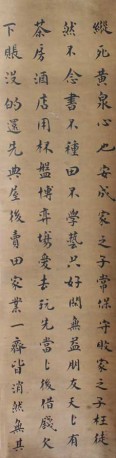 縱死黃泉心也安成家之子常保守敗家之子枉徒
然不念書不種田不學藝只好閑無益朋友天々有
茶房酒店用杯盤博弈塲愛去玩先當上後借錢欠
下賬沒的還先典屋後賣田家業一齊皆消然無其